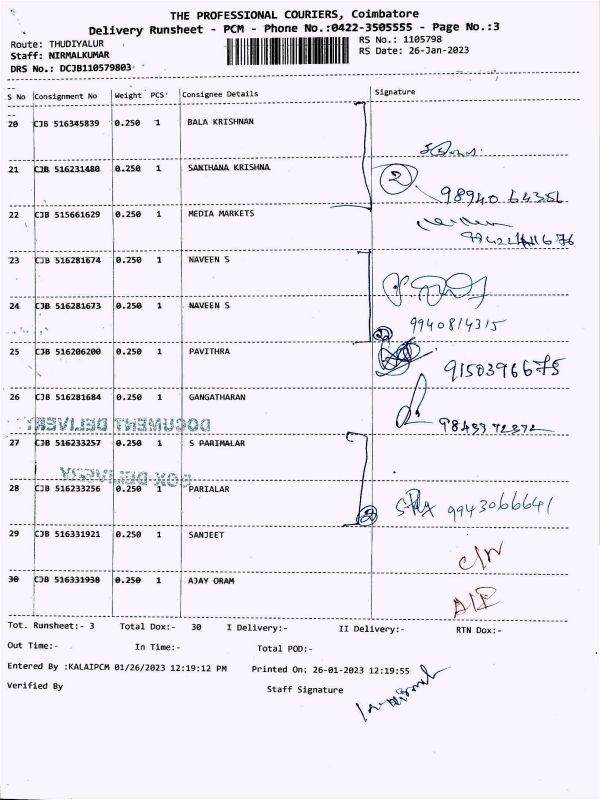 THE PROFESSIONAL COURIERS, Coimbatore
Delivery Runsheet - PCM - Phone No.:0422-3505555 - Page No.:3
Route: THUDIYALUR RS No.: 1105798
Staff: NIRMALKUMAR RS Date: 26-Jan-2023
DRS No.: DCJB110579803
S No Consignment No Weight PCS' Consignee Details Signature
20 CJB 516345839 0.250 1 BALA KRISHNAN
21 CJB 516231480 0.250 1 SANTHANA KRISHNA 2
22 CJB 515661629 0.250 1 MEDIA MARKETS
23 CJB 516281674 0.250 1 NAVEEN S
24 CJB 516281673 0.250 1 NAVEEN S 9940814315
25 CJB 516206200 0.250 1 PAVITHRA 9150396675
26 CJB 516281684 0.250 1 GANGATHARAN
DOCUMENT DELIVERY
27 CJB 516233257 0.250 1 S PARIMALAR
BOX DELIVERY
28 CJB 516233256 0.250 1 PARIALAR 9943066641
29 CJB 516331921 0.250 1 SANJEET
30 CJB 516331930 0.250 1 AJAY ORAM
Tot. Runsheet:- 3 Total Dox:- 30 I Delivery:- II Delivery:- RTN Dox:-
Out Time:- In Time:- Total POD:-
Entered By :KALAIPCM 01/26/2023 12:19:12 PM Printed On: 26-01-2023 12:19:55
Verified By Staff Signature